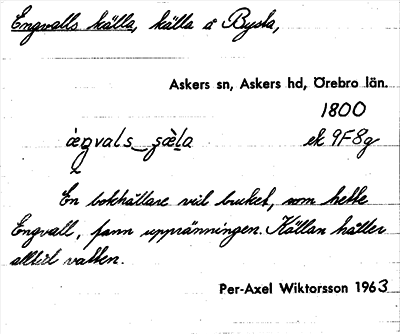 Engvalls källa, källa å Bysta,
Askers sn, Askers hd, Örebro län.
1800
ek 9F8g
En bokhållare vid bruket, som hette
Engvall, fann upprinningen. Källan håller
alltid vatten.
Per-Axel Wiktorsson 1963